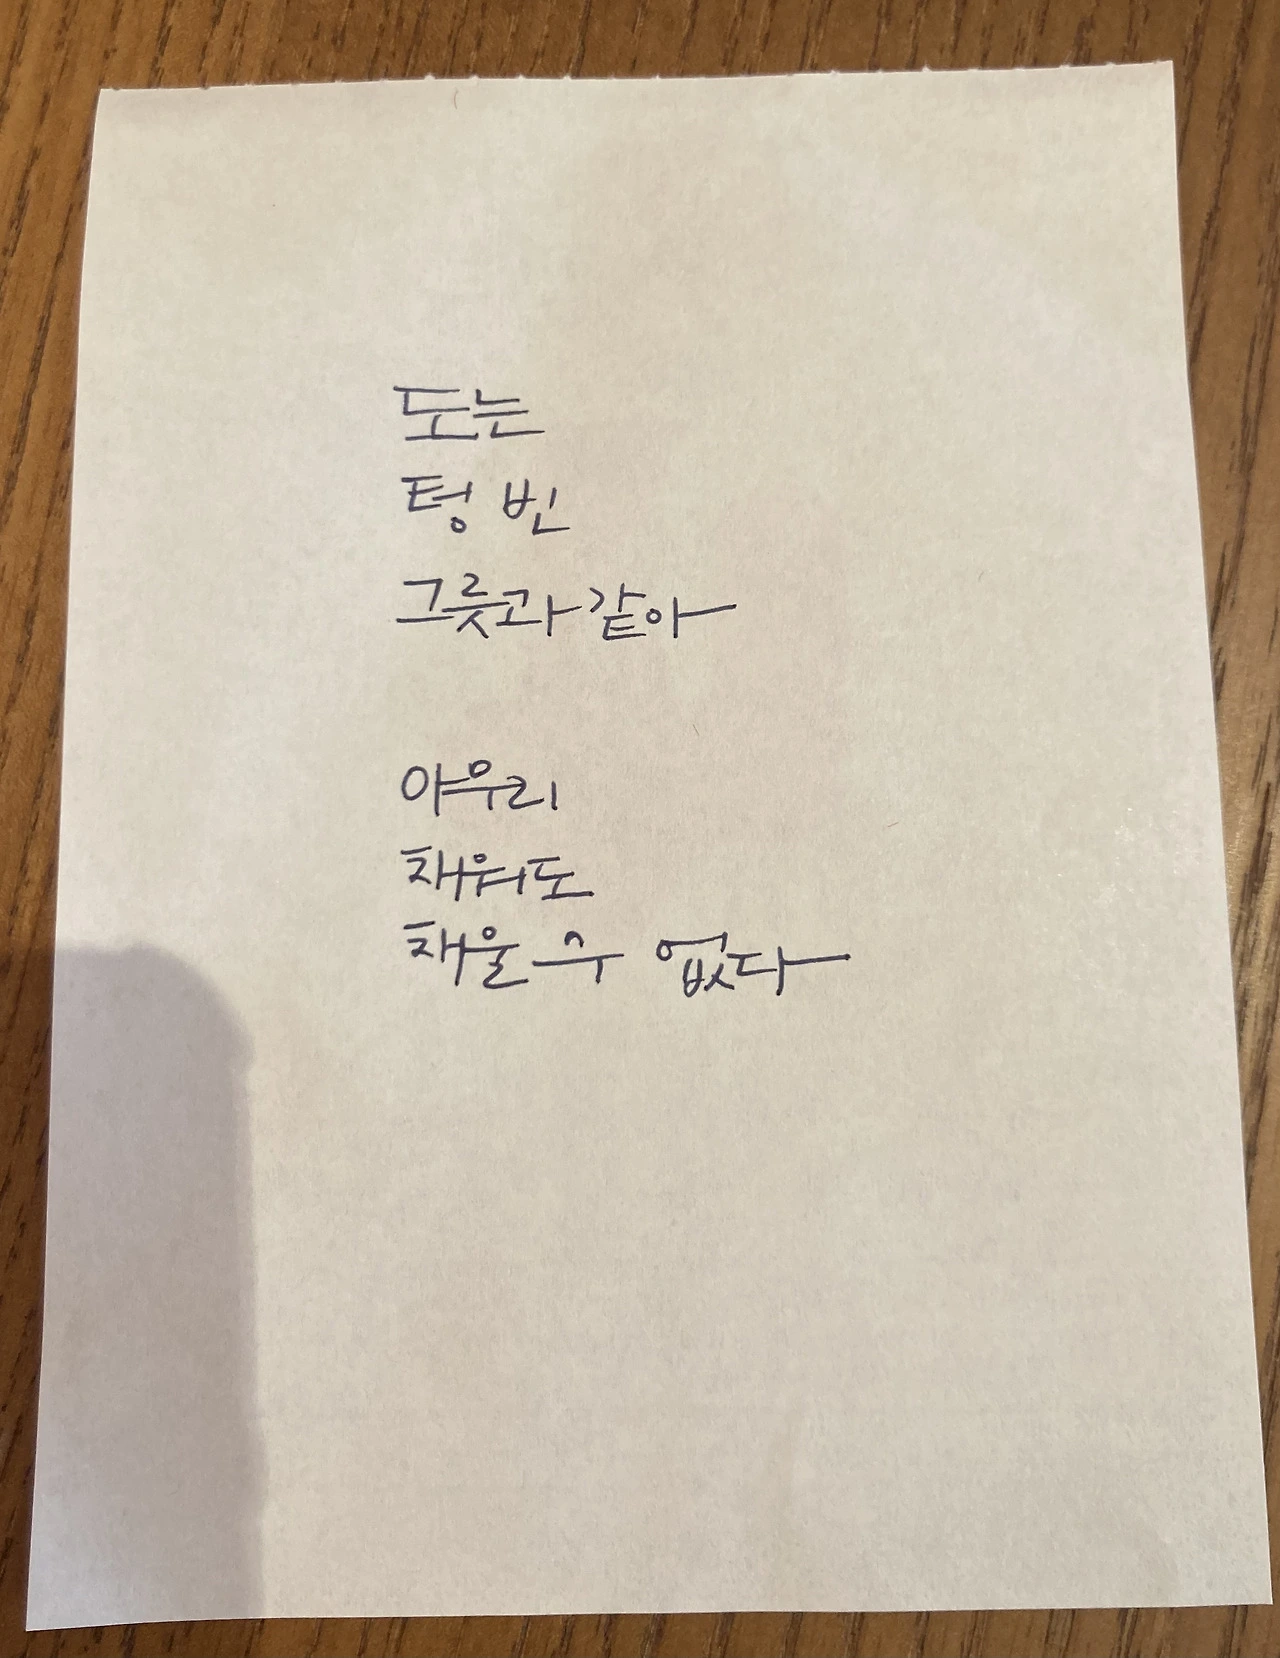 도는
텅 빈
그릇과 같아
아무리
채워도
채울 수 없다